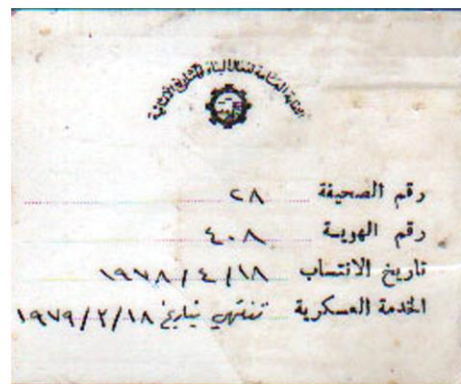 النقابة العامة لعمال البناء
رقم الصحيفة ٢٨
رقم الهوية ٤٠٨
تاريخ الانتساب ١٩٧٨/٤/١٨
الخدمة العسكرية تنتهي بتاريخ ١٩٧٩/٢/١٨